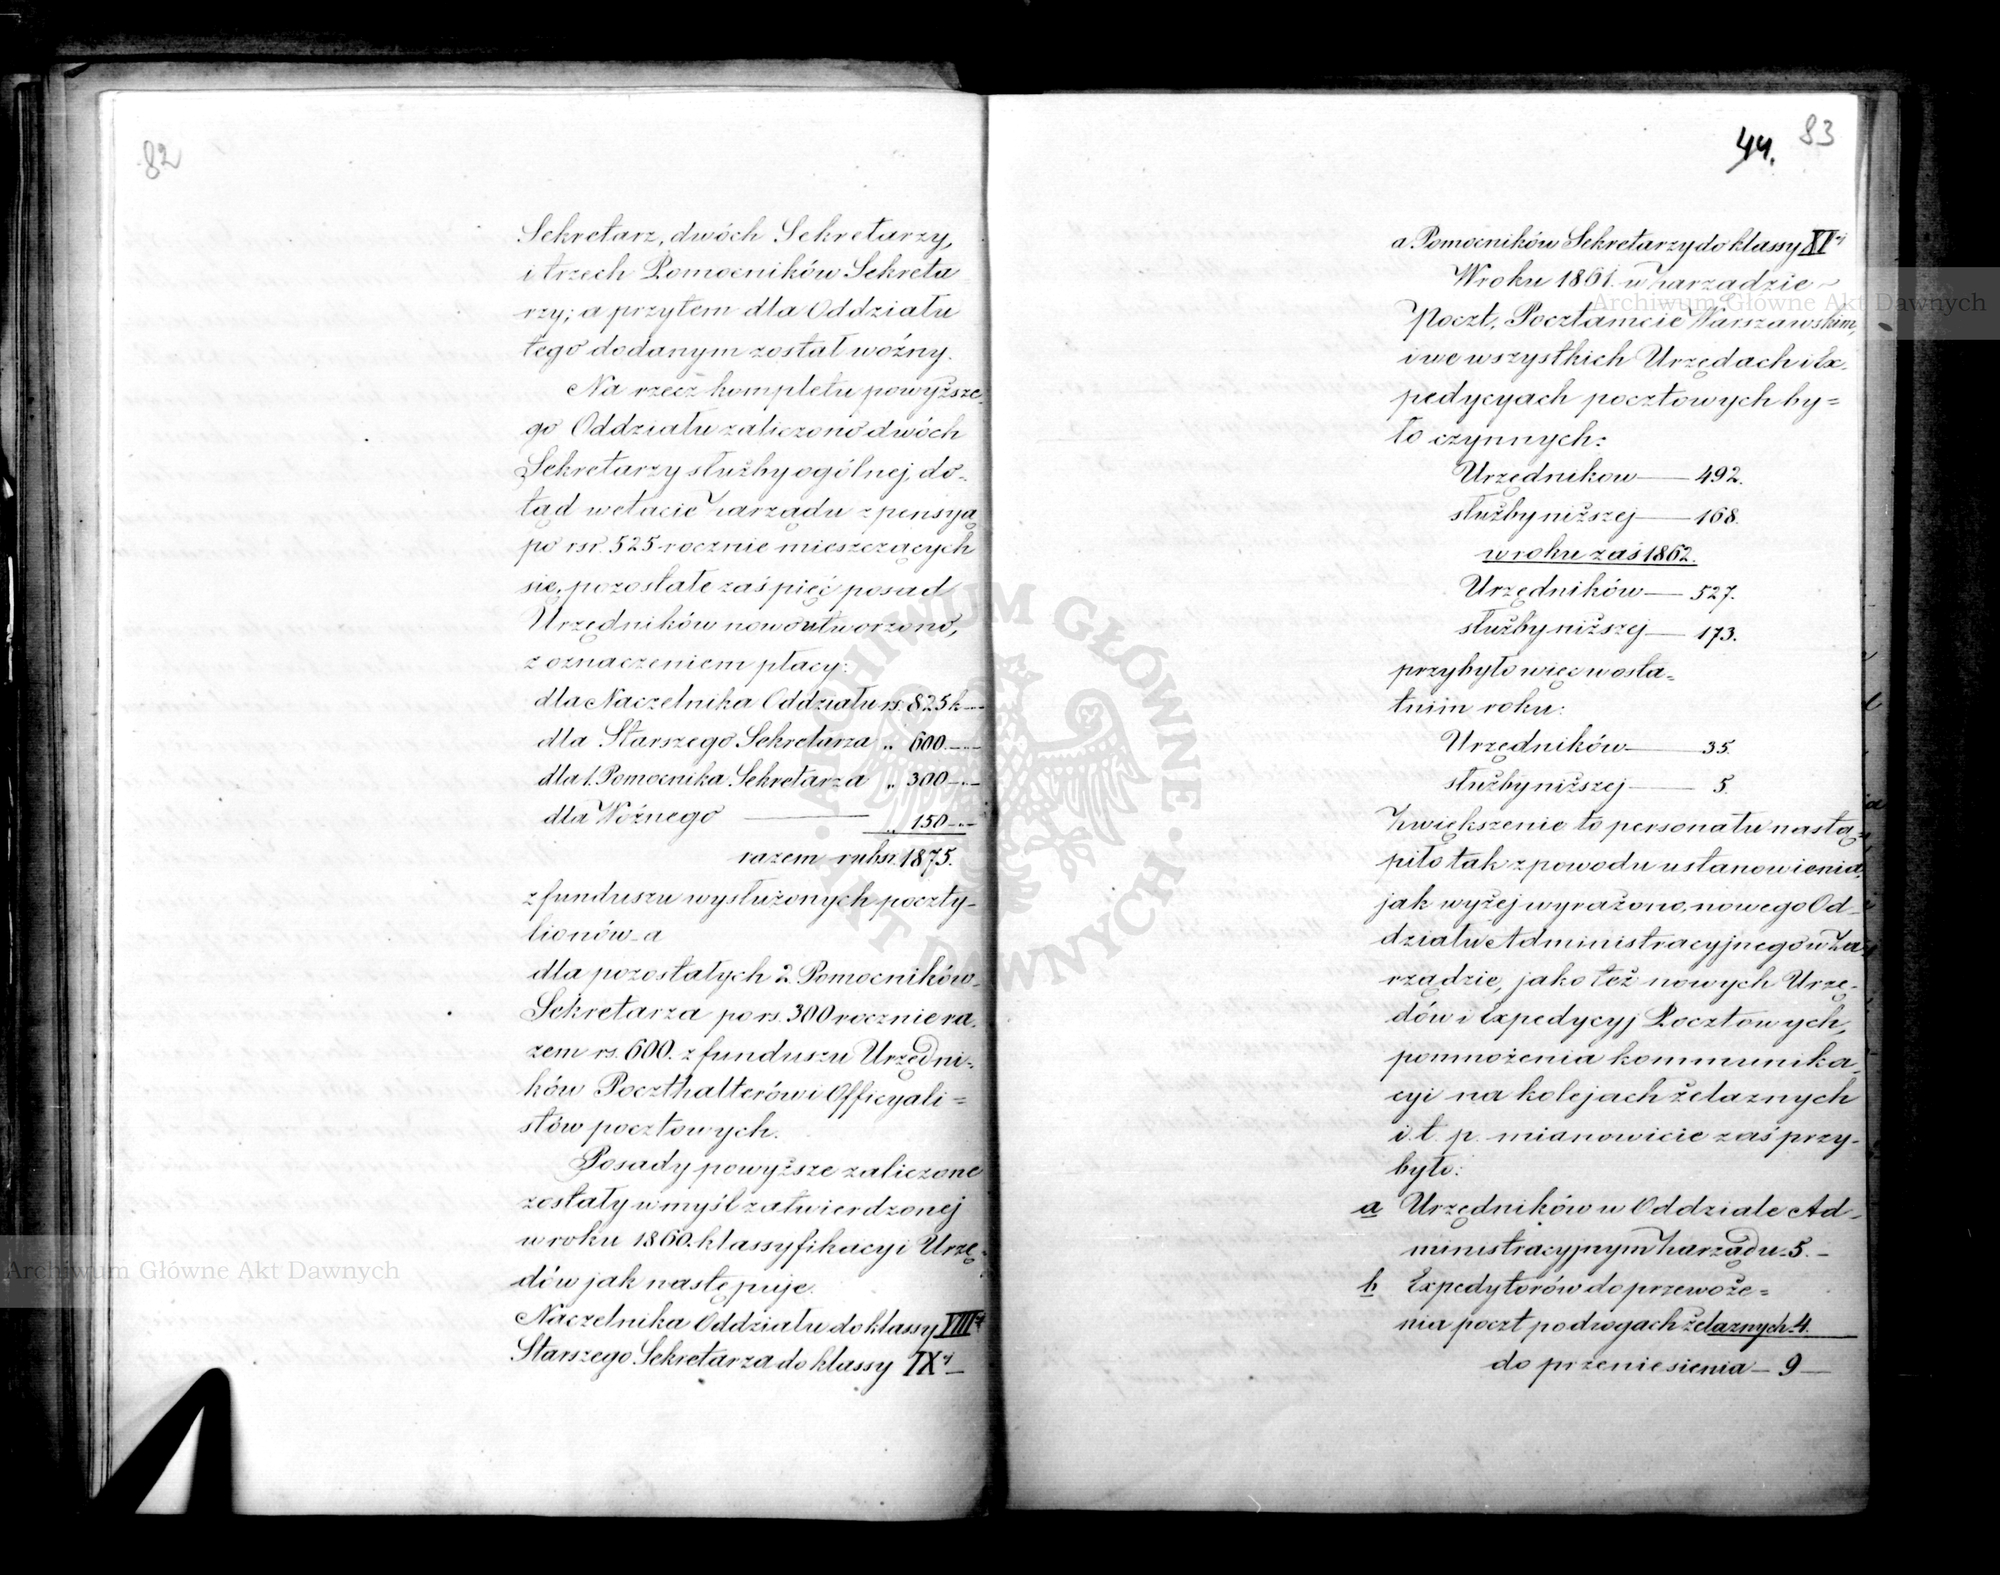 82
Sekretarz, dwóch Sekretarzy,
i trzech Pomocników Sekreta
rzy; a przytem dla Oddziału
tego dodanym został woźny.
Na rzecz kompletu powyższe-
go Oddziału zaliczono dwóch
Sekretarzy służby ogólnej, do-
tąd w etacie Zarządu z pensyą
po rsr. 525 rocznie mieszczących
się, pozostałe zaś pięć posad
Urzędników nowoutworzono,
z oznaczeniem płacy:
dla Naczelnika Oddziału rs. 825 k —
dla Starszego Sekretarza „ 600 —
dla 1. Pomocnika Sekretarza „ 300 —
dla Woźnego — „ 150 —
razem rubsr. 1875.
z funduszu wysłużonych poczty-
lionów - a
dla pozostałych 2 Pomocników
Sekretarza po rs. 300 rocznie ra-
zem rs. 600. z funduszu Urzędni-
ków Poczthalterów i Officyali=
stów pocztowych.
Posady powyższe zaliczone
zostały w myśl zatwierdzonej
w roku 1860. klassyfikacyi Urzę-
dów jak następuje.
Naczelnika Oddziału do klassy VIIIej
Starszego Sekretarza do klassy IXej —
44. 83
a Pomocników Sekretarzy do klassy XIej
W roku 1861. w Zarządzie
Poczt, Pocztamcie Warszawskim,
i we wszystkich Urzędach i Ex-
pedycyach pocztowych by=
ło czynnych:
Urzędnikow — 492.
służby niższej — 168.
w roku zaś 1862.
Urzędników — 527.
służby niższej — 173.
przybyło więc w osta=
tnim roku:
Urzędników — 35.
służby niższej — 5.
Zwiększenie to personału nastą-
piło tak z powodu ustanowienia,
jak wyżej wyrażono, nowego Od-
działu Administracyjnego w Za-
rządzie, jako też nowych Urzę-
dów i Expedycyj Pocztowych,
pomnożenia kommunika-
cyi na kolejach żelaznych
i. t. p. mianowicie zaś przy-
było:
a Urzędników w Oddziale Ad-
ministracyjnym Zarządu - 5. -
b Expedytorów do przewoże=
nia poczt po drogach żelaznych - 4.
do przeniesienia — 9 —
Archiwum Główne Akt Dawnych
Archiwum Główne Akt Dawnych
ARCHIWUM GŁÓWNE · AKT DAWNYCH ·